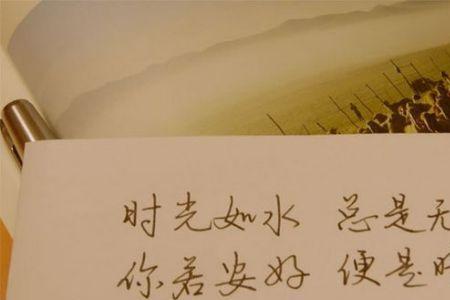 时光如水 总是无
你若安好 便是